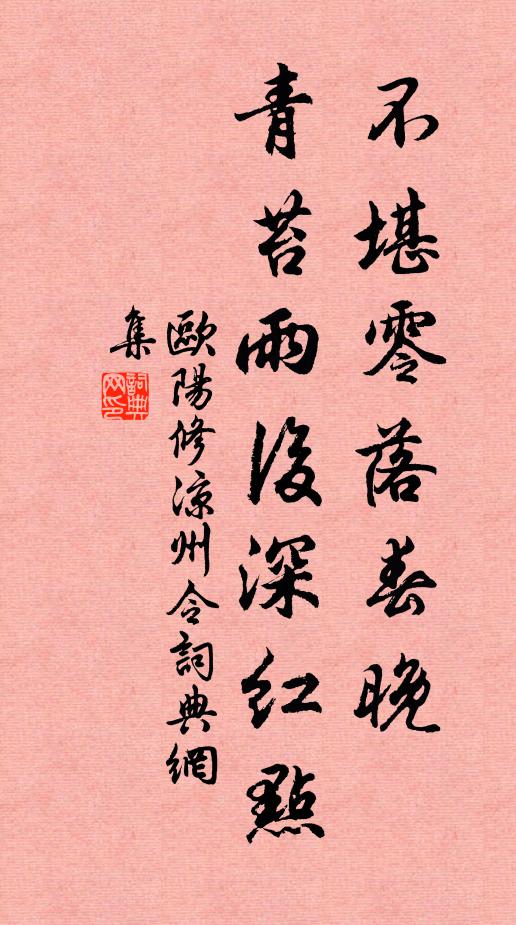 不堪零落春晚
青苔雨後深紅點
歐陽修涼州令詞典網
集
詞典
网印